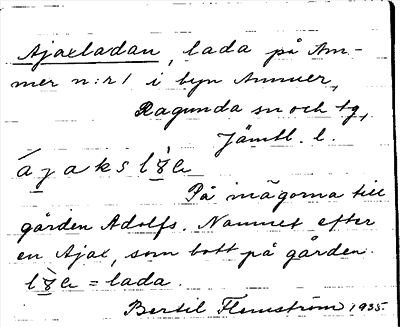 Ajaxladan, lada på Am-
mer n:r 1 i byn Ammer,
Ragunda sn och tg,
Jämtl. l.
På mägorna till
gården Adolfs. Namnet efter
en Ajax, som bott på gården.
= lada.
Bertil Flemström 1935.